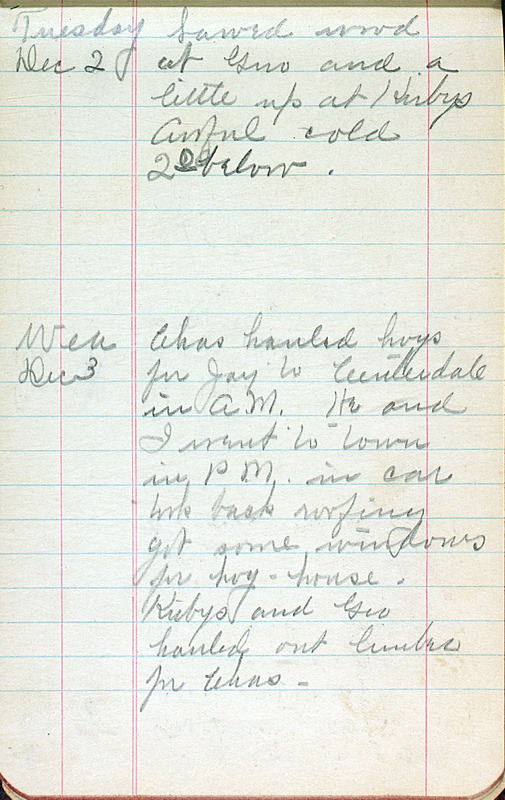 Tuesday Sawed wood
Dec 2 at Geo and a
little up at Kirbys
Awful cold
20 below.
Wed Chas hauled hogs
Dec 3 for Jay to Centerdale
in A.M. He and
I went to town
in P.M. in car
took back roofing
got some windows
for hog-house.
Kirbys and Geo
hauled out lumber
for Chas -